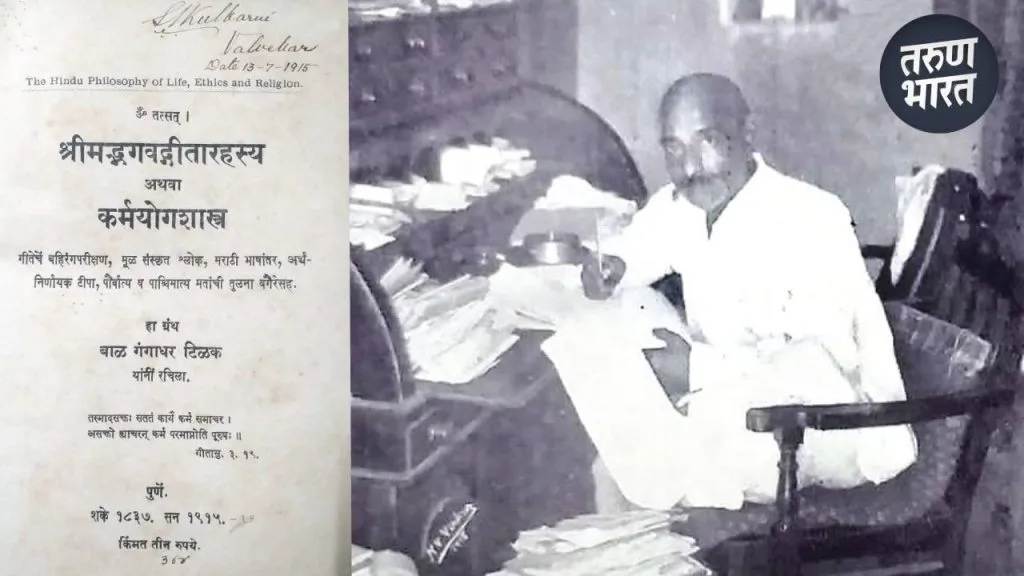 S. Kulkarni
Valvekar
Date 13-7-1915
The Hindu Philosophy of Life, Ethics and Religion.
ॐ तत्सत् ।
श्रीमद्भगवद्गीतारहस्य
अथवा
कर्मयोगशास्त्र
गीतेचें बहिरंगपरीक्षण, मूळ संस्कृत श्लोक, मराठी भाषांतर, अर्थ-
निर्णायक टीपा, पौर्वात्य व पाश्चिमात्य मतांची तुलना वगैरेसह.
हा ग्रंथ
बाळ गंगाधर टिळक
यांनीं रचिला.
तस्मादसक्तः सततं कार्यं कर्म समाचर ।
असक्तो ह्याचरन् कर्म परमाप्नोति पूरुषः ॥
गीतासु. ३. १९.
पुणें.
शके १८३७. सन १९१५.
किंमत तीन रुपये.
तरुण
भारत